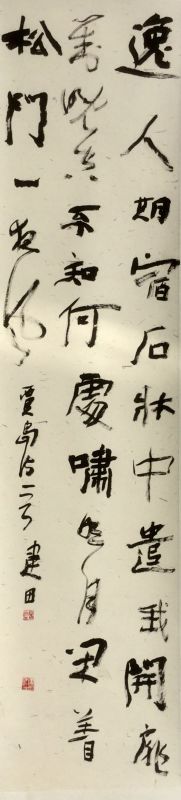 逸人期宿石牀中遣我開扉
對晚空不知何處嘯秋月閑着
松門一夜風
賈島诗一首 建田